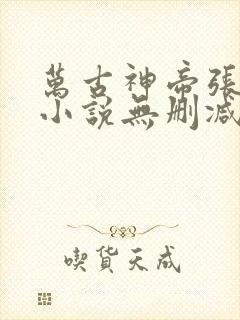 萬古神帝張
小說無刪減
喫貨天成